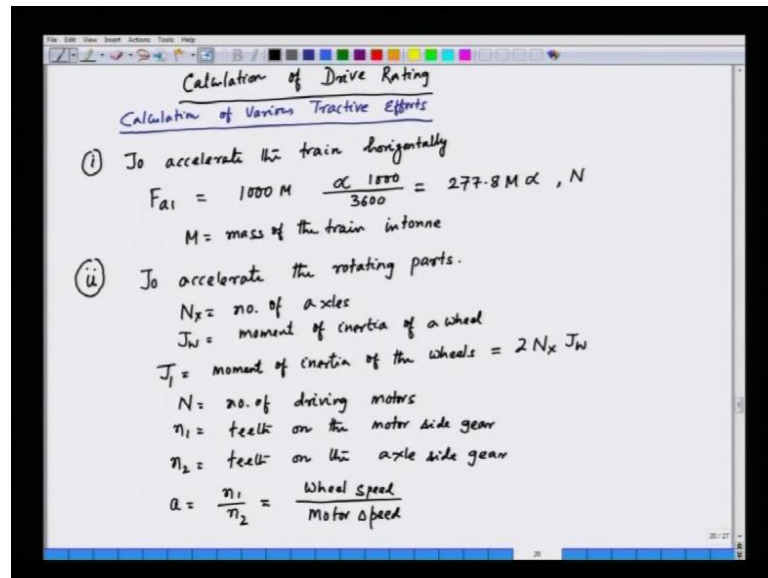 File Edit View Insert Actions Tools Help
Calculation of Drive Rating
Calculation of Various Tractive Efforts
(i) To accelerate the train horizontally
Fa1 = 1000 M α 1000 / 3600 = 277.8 M α , N
M = mass of the train in tonne
(ii) To accelerate the rotating parts.
Nx = no. of axles
JW = moment of inertia of a wheel
J1 = moment of inertia of the wheels = 2 Nx JW
N = no. of driving motors
n1 = teeth on the motor side gear
n2 = teeth on the axle side gear
a = n1 / n2 = Wheel speed / Motor speed
20/27
20